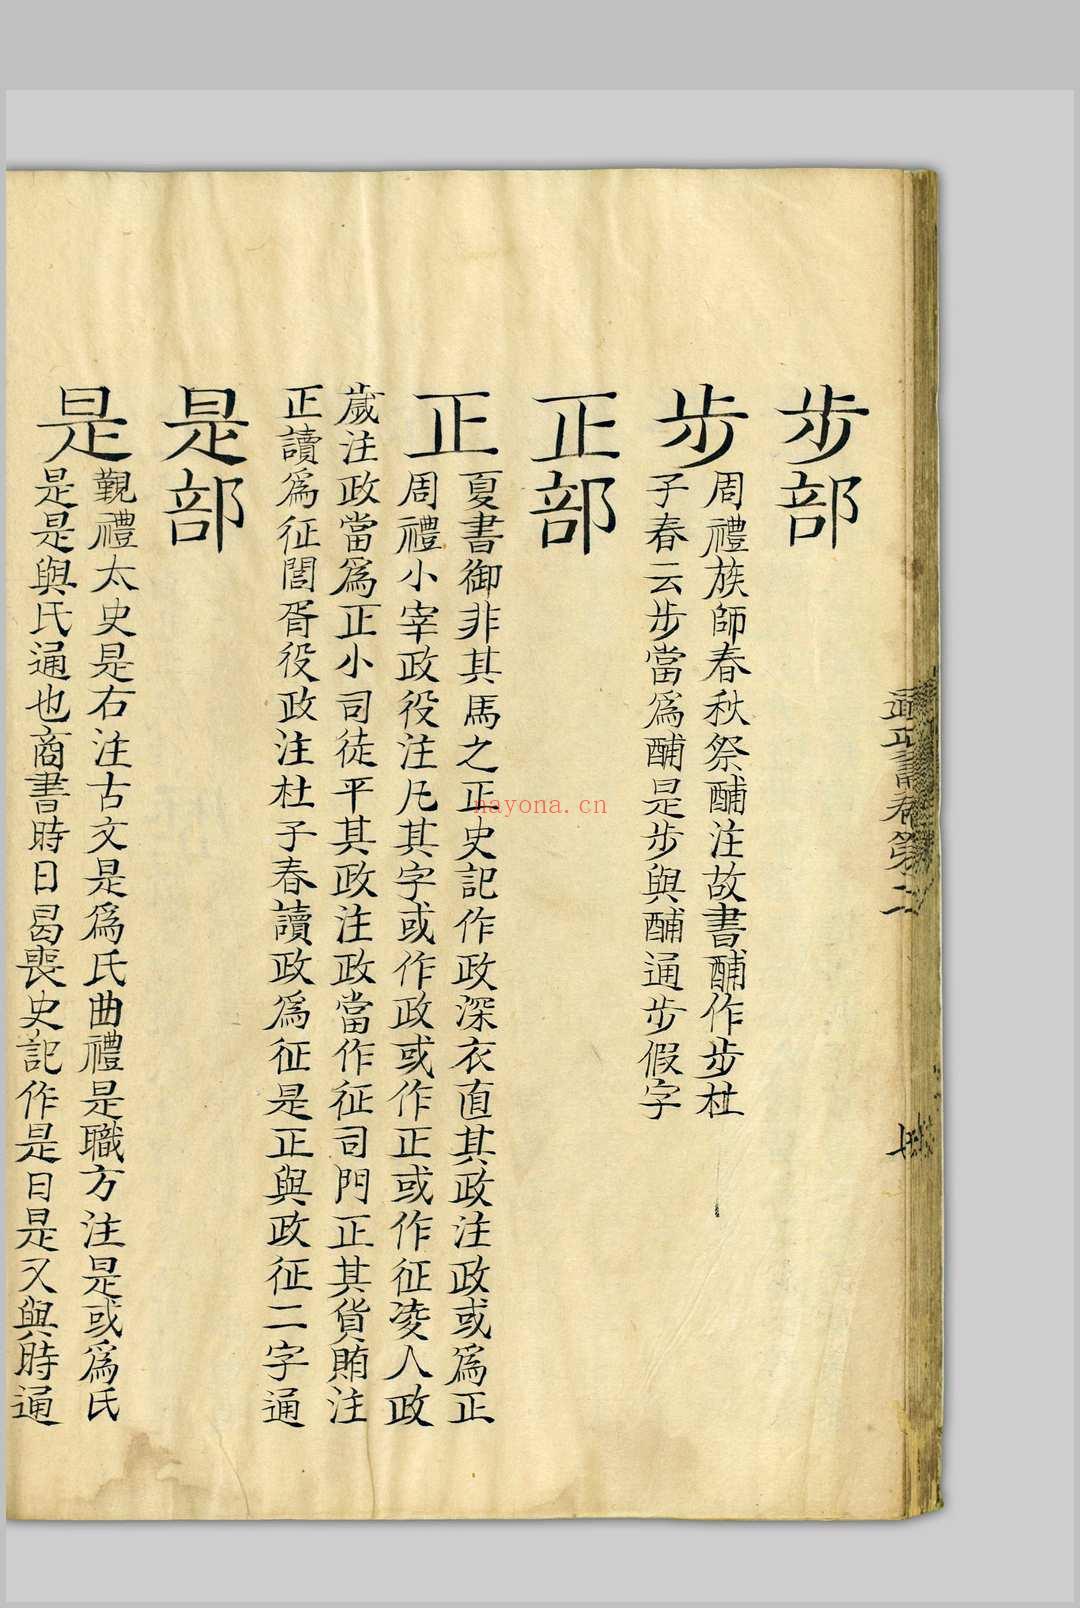 步部
步
周禮族師春秋祭酺注故書酺作步杜
子春云步當爲酺是步與酺通步假字
正部
正
夏書御非其馬之正史記作政深衣直其政注政或爲正
周禮小宰政役注凡其字或作政或作正或作征凌人政
歲注政當爲正小司徒平其政注政當作征司門正其貨賄注
正讀爲征閭胥役政注杜子春讀政爲征是正與政征二字通
是部
是
覲禮太史是右注古文是爲氏曲禮是職方注是或爲氏
是是與氏通也商書時日曷喪史記作是日是又與時通
書卷第二
nayona.cn